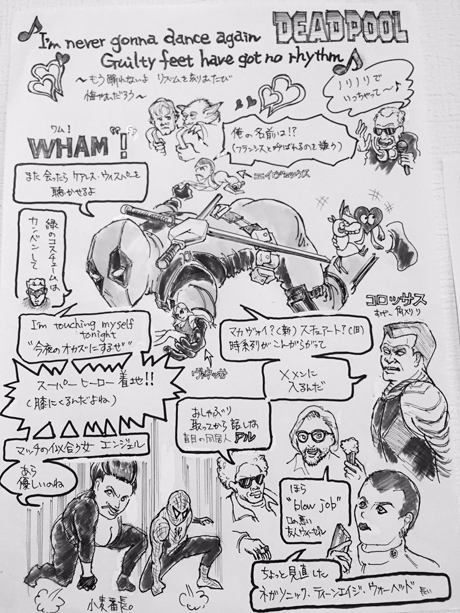 DEADPOOL
I'm never gonna dance again
Guilty feet have got no rhythm
ノリノリで
いっちゃって〜♪
ワム!
WHAM"!
俺の名前は!?
(フランシスと呼ばれるのを嫌う)
また会ったらケアレス・ウィスパーを
聴かせるよ
緑のコスチュームは
カンベンして
コロッサス
I'm touching myself
tonight
"今夜のオカズにするぜ"
マカヴォイ?(新)スチュアート?(旧)
時系列がこんがらがって
X×メンに
入るんだ
スーパーヒーロー着地!!
(膝にくるんだよね)
おしゃぶり
取ってから話しな
盲目の同居人 アル
マッチの似合う女 エンジェル
あら
優しいのね
ほら
"blow job"
口の悪い
友人ウィーゼル
ちょっと見直した
ネガソニック・ティーンエイジ・ウォーヘッド
長い